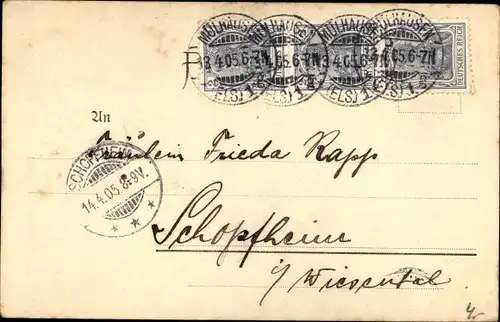 MÜLHAUSEN MÜLHAUSEN MÜLHAUSEN MÜLHAUSEN
13.4.05.6-7N 13.4.05.6-7N 13.4.05.6-7N 13.4.05.6-7N
(ELS) 1 (ELS) 1 (ELS) 1 (ELS) 1
DEUTSCHES REICH
An
Fräulein Frieda Rapp
SCHOPFHEIM
14.4.05.8-9V.
Schopfheim
i/ Wiesental